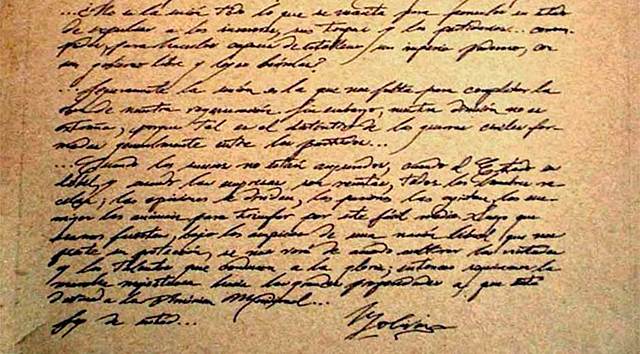 ...¿No es la unión todo lo que se necesita para ponerlos en estado
de expulsar a los sus tropas y los partidarios... corrom-
pida, para hacerlos capaces de establecer un imperio poderoso, con
un gobierno libre y leyes
...Seguramente la unión es la que nos falta para completar la
obra de nuestra regeneración. Sin embargo, nuestra división no es
extraña, porque tal es el distintivo de las guerras civiles for-
madas generalmente entre dos partidos...
...Cuando los sucesos no están asegurados, cuando el Estado es
débil, y cuando las empresas son remotas, todos los hombres va-
cilan; las opiniones se dividen, las pasiones las agitan los ene-
migos las animan para triunfar por este fácil medio. Luego que
seamos fuertes, bajo los auspicios de una nación liberal que nos
preste su protección, se nos verá de acuerdo cultivar las virtudes
y los talentos que conducen a la gloria; entonces seguiremos la
marcha majestuosa hacia las grandes prosperidades a que está
destinada la América Meridional...
Soy de usted... Bolívar